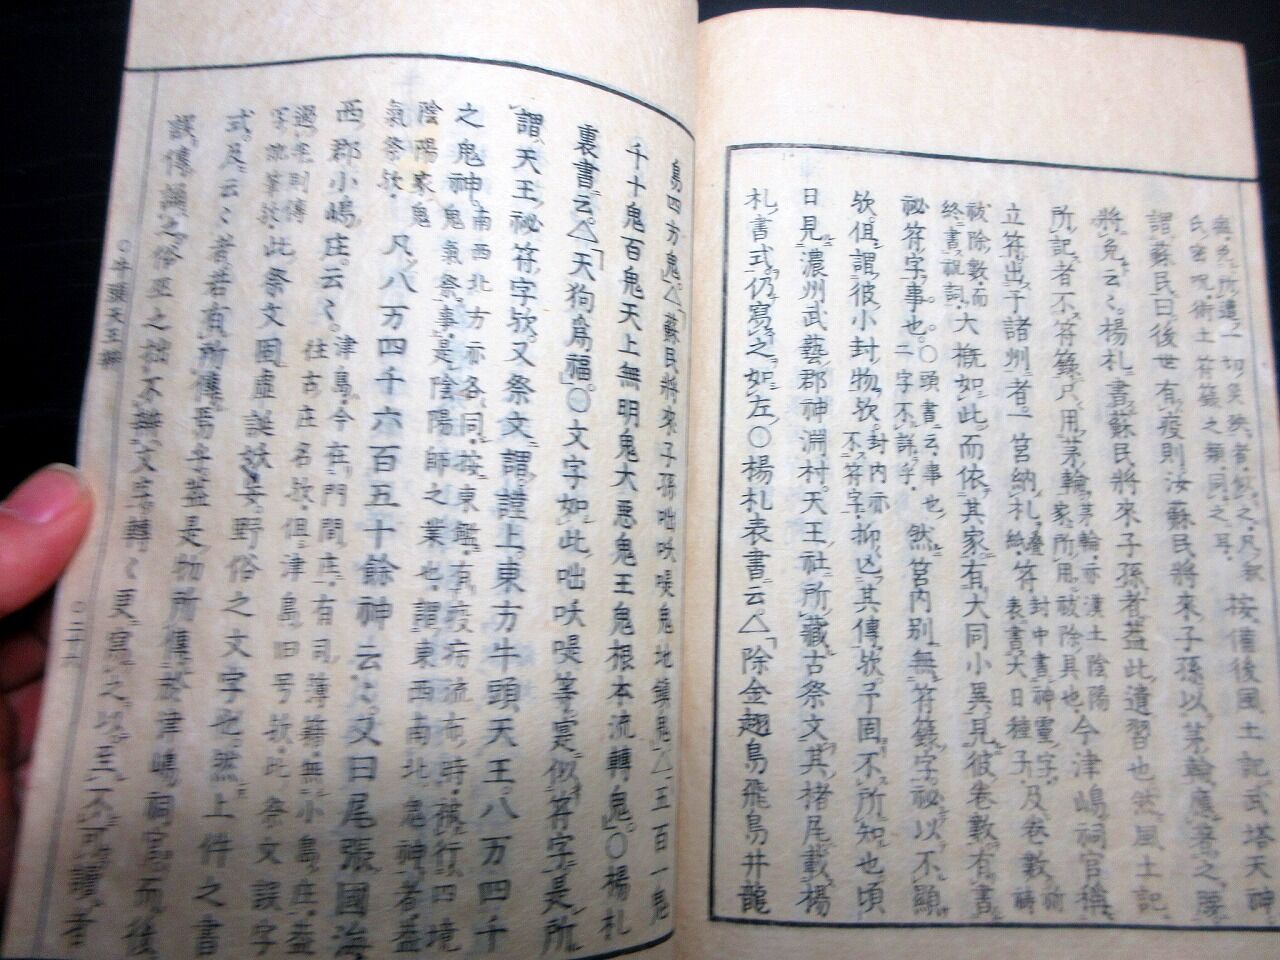 氏密咒術土符籙之類同之耳 按舊後風土記武塔天神
謂蘇民曰後世有疫則汝蘇民將來子孫以茅輪應著之腰
將免云〻楊札書蘇民將來子孫者蓋此遺習也然風土記
所記者不符籙只用茅輪 茅輪亦漢土陰陽家所用祓除具也 今津嶋祠官稱
立符出于諸州者一筥納札 疊紙符 表書大日種子及卷數
祓除數而終書祝詞 大概如此而依其家有大同小異見彼卷數有書
祕符字事也 ○頭書云事也二字不詳乎 然筥内別無符籙字祕以不顯
欤但謂彼小封物欤 封内亦不符字 抑凶其傳欤予固不所知也頃
日見濃州武藝郡神淵村天王社所藏古祭文其楮尾載楊
札書式仍寫之如左○楊札表書云△「除金翅鳥飛鳥井龍
鳥四方鬼」△「蘇民將來子孫咄㕭㖷鬼地鎮鬼」△「五百一鬼
千十鬼百鬼天上無明鬼大惡鬼王鬼根本流轉鬼」○楊札
裏書云△「天狗爲福」○文字如此咄㕭㖷等寔似符字是所
謂天王祕符字欤又祭文謂謹上東方牛頭天王八万四千
之鬼神 南西北方亦各同按東鑑有疫疠流布時被行四境
鬼氣祭事是陰陽師之業也謂東西南北鬼神者蓋
陰陽家鬼氣祭欤 凡八万四千六百五十餘神云〻又曰尾張國海
西郡小嶋庄云〻 津島今在門間庄有司薄籍無小島庄蓋
往古庄名欤但津島旧号欤此祭文誤字
此祭文固虛誕妖妄野俗之文字也然上件之書
式及云〻者若有所傳焉乎蓋是物所傳於津嶋祠官而後
誤傳謬之俗巫之拙不辨文字轉〻更寫之以至不可讀者
○牛頭天王辨